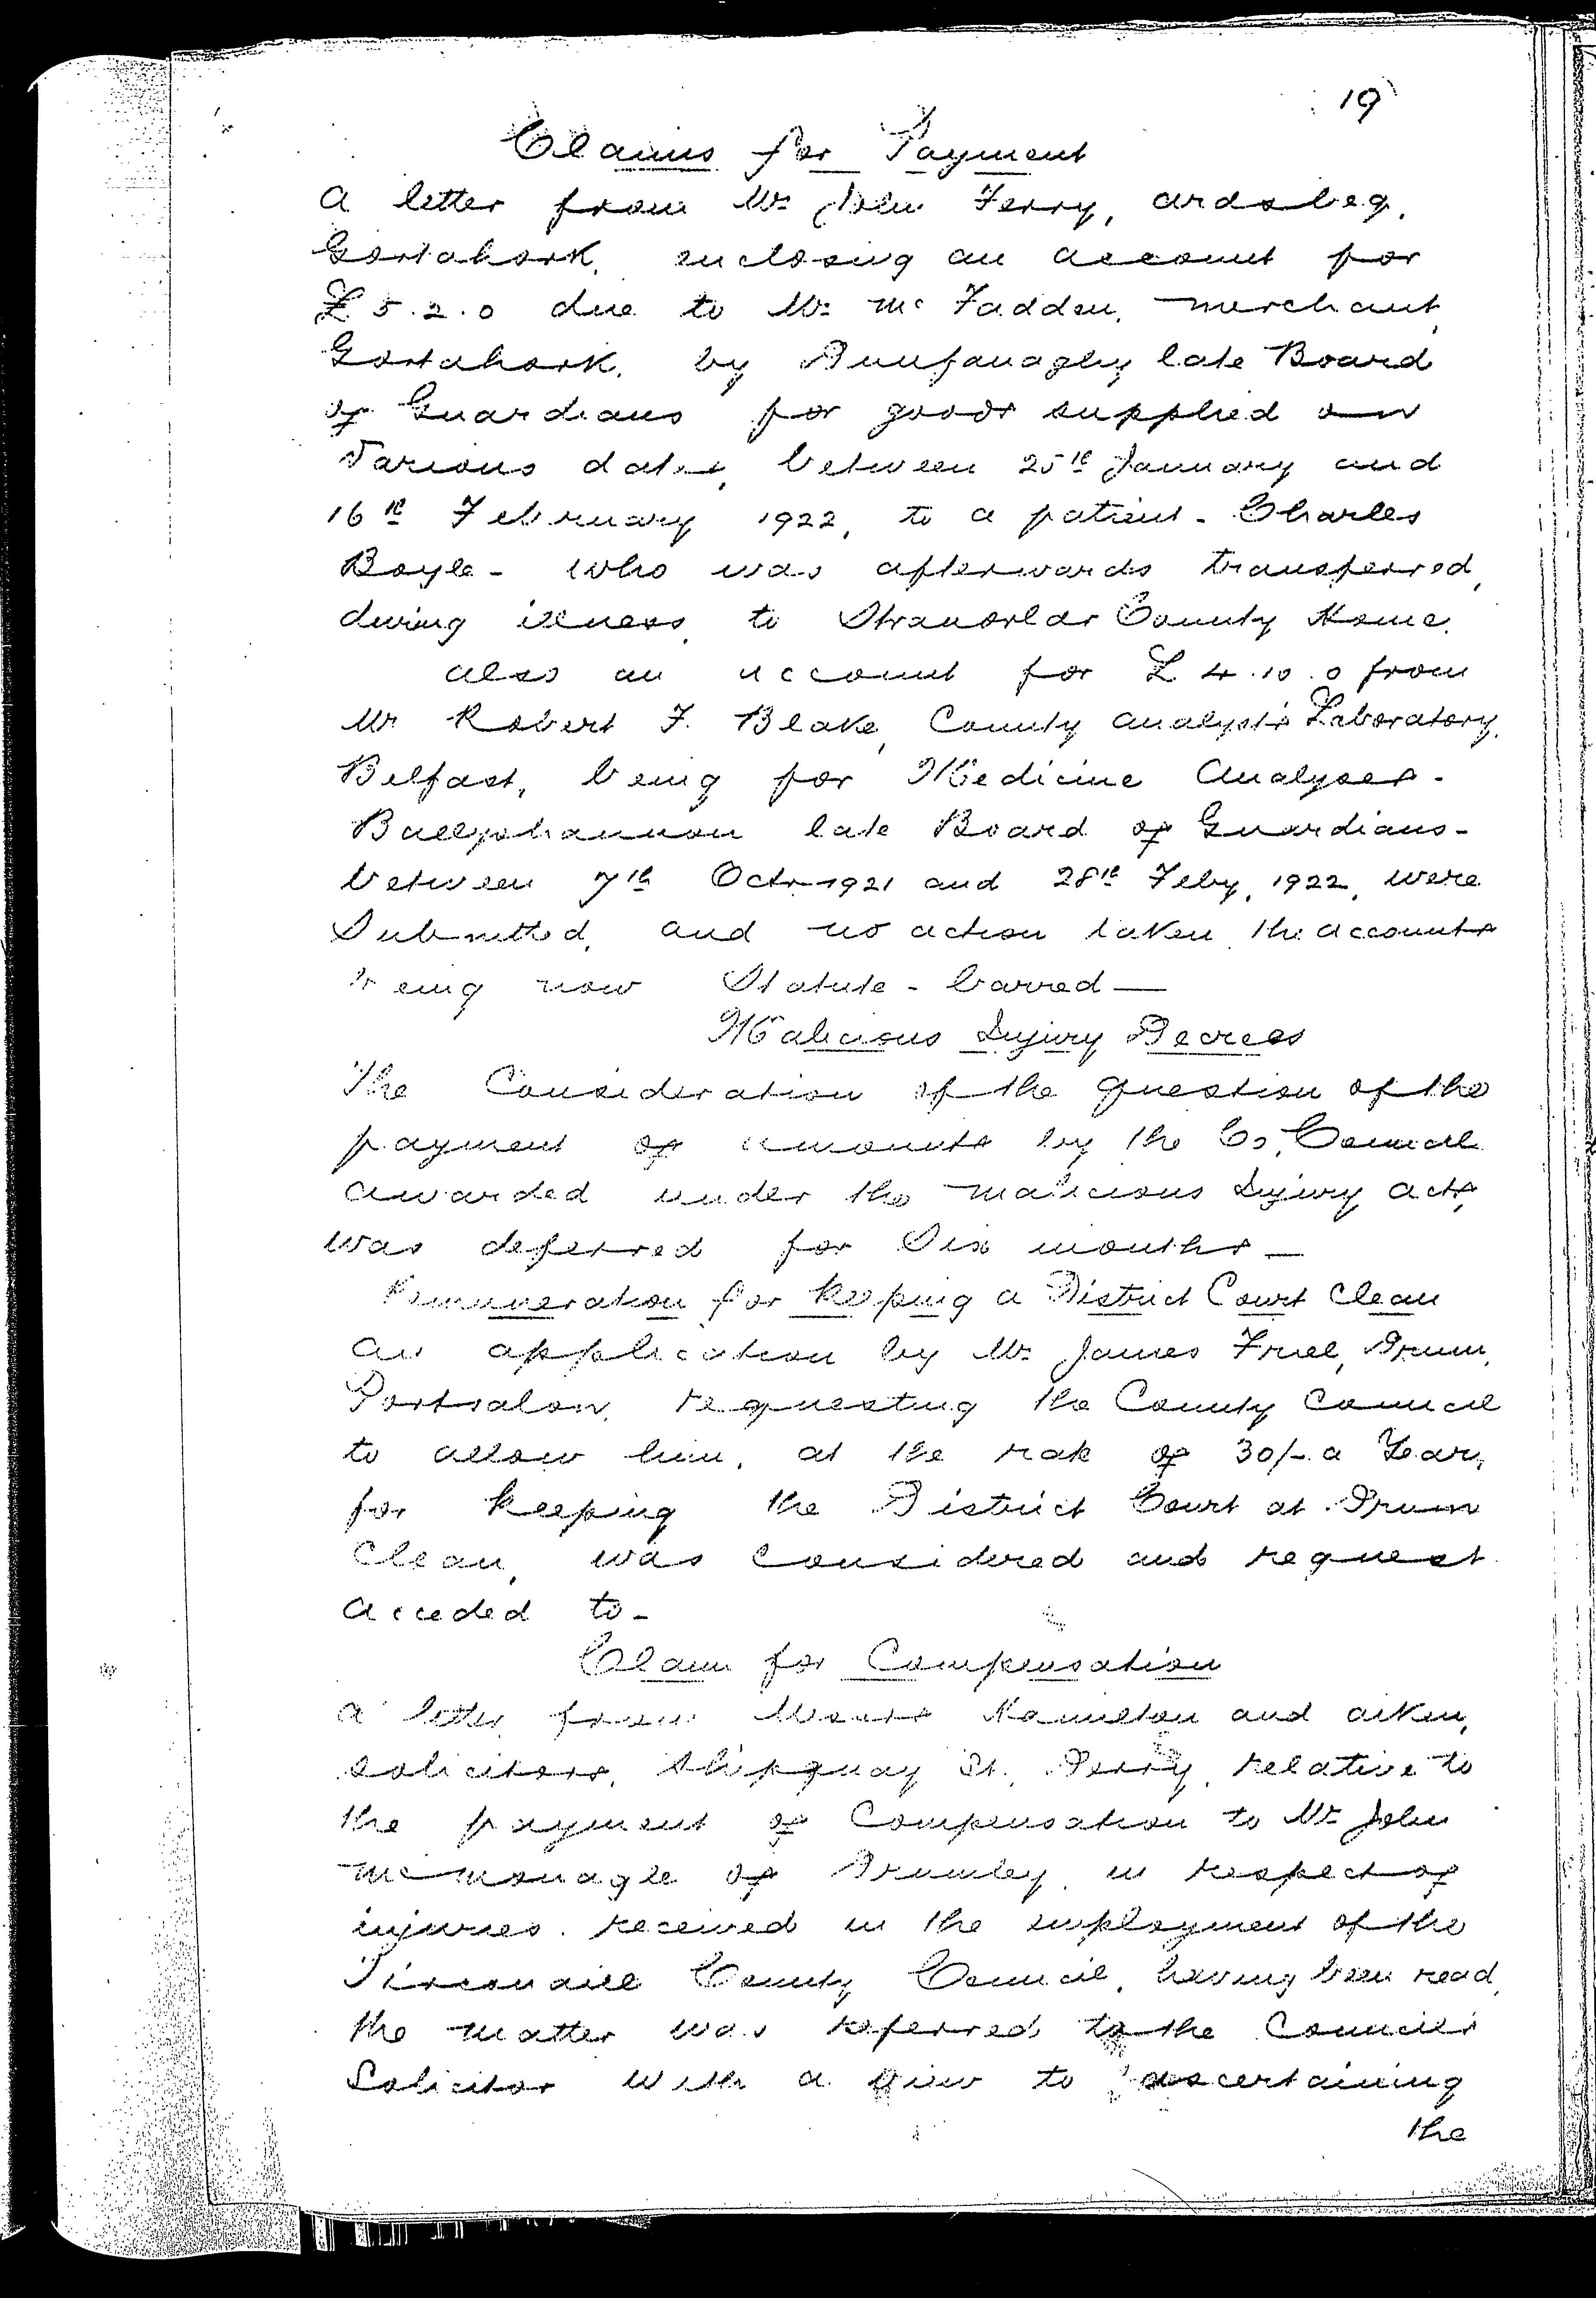 19
Claims for Payment
A letter from Mr John Ferry, Ardsbeg,
Gortahork, enclosing an account for
£5.2.0 due to Mr McFadden, merchant,
Gortahork, by Dunfanaghy late Board
of Guardians for goods supplied on
various dates, between 25th January and
16th February 1922, to a patient - Charles
Boyle - who was afterwards transferred,
during illness, to Stranorlar County Home.
Also an account for £4.10.0 from
Mr Robert F. Blake, County Analyst's Laboratory,
Belfast, being for Medicine Analyses -
Ballyshannon late Board of Guardians -
between 7th Octr 1921 and 28th Feby, 1922, were
Submitted, and no action taken, the accounts
being now Statute-barred —
Malicious Injury Decrees
The Consideration of the question of the
payment of amounts by the Co. Council
awarded under the Malicious Injury Acts,
was deferred for Six months —
Remuneration for keeping a District Court Clean
An application by Mr James Friel, Drum,
Portsalon, requesting the County Council
to allow him, at the rate of 30/- a Year,
for keeping the District Court at Drum
Clean, was Considered and request
acceded to -
Claim for Compensation
A letter from Messrs Hamilton and Aiken,
Solicitors, Shipquay St., Derry, relative to
the payment of Compensation to Mr John
McMonagle of Trumley, in respect of
injuries received in the employment of the
Tirconaill County Council, having been read,
the matter was referred to the Council's
Solicitor with a view to ascertaining
the